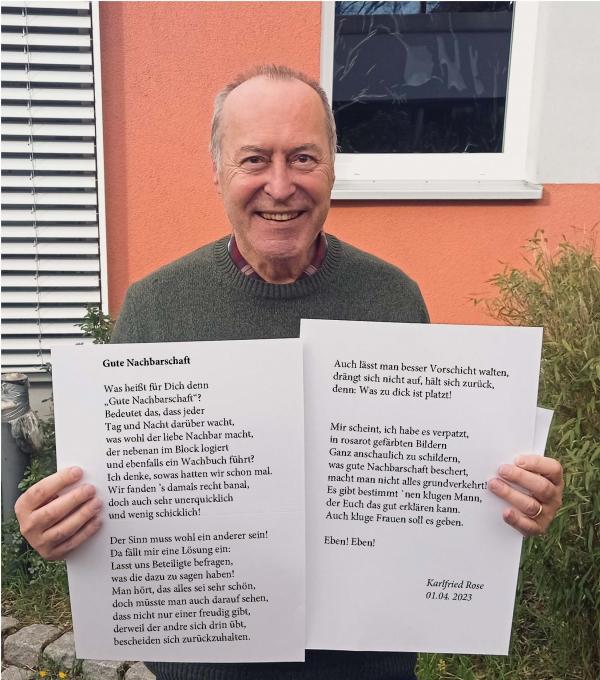 Gute Nachbarschaft
Was heißt für Dich denn
„Gute Nachbarschaft“?
Bedeutet das, dass jeder
Tag und Nacht darüber wacht,
was wohl der liebe Nachbar macht,
der nebenan im Block logiert
und ebenfalls ein Wachbuch führt?
Ich denke, sowas hatten wir schon mal.
Wir fanden `s damals recht banal,
doch auch sehr unerquicklich
und wenig schicklich!
Der Sinn muss wohl ein anderer sein!
Da fällt mir eine Lösung ein:
Lasst uns Beteiligte befragen,
was die dazu zu sagen haben!
Man hört, das alles sei sehr schön,
doch müsste man auch darauf sehen,
dass nicht nur einer freudig gibt,
derweil der andre sich drin übt,
bescheiden sich zurückzuhalten.
Auch lässt man besser Vorschicht walten,
drängt sich nicht auf, hält sich zurück,
denn: Was zu dick ist platzt!
Mir scheint, ich habe es verpatzt,
in rosarot gefärbten Bildern
Ganz anschaulich zu schildern,
was gute Nachbarschaft beschert,
macht man nicht alles grundverkehrt!
Es gibt bestimmt `nen klugen Mann,
der Euch das gut erklären kann.
Auch kluge Frauen soll es geben.
Eben! Eben!
Karlfried Rose
01.04. 2023